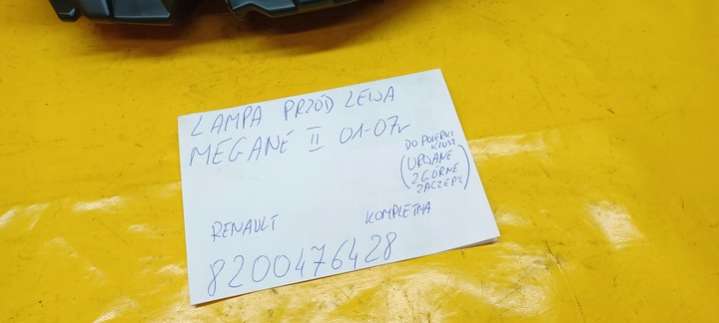 LAMPA PRZÓD LEWA
MEGANE II 01-07r
DO POLERKI
KLOSZ
(URWANE
2 GÓRNE
ZACZEPY)
RENAULT KOMPLETNA
8200476428